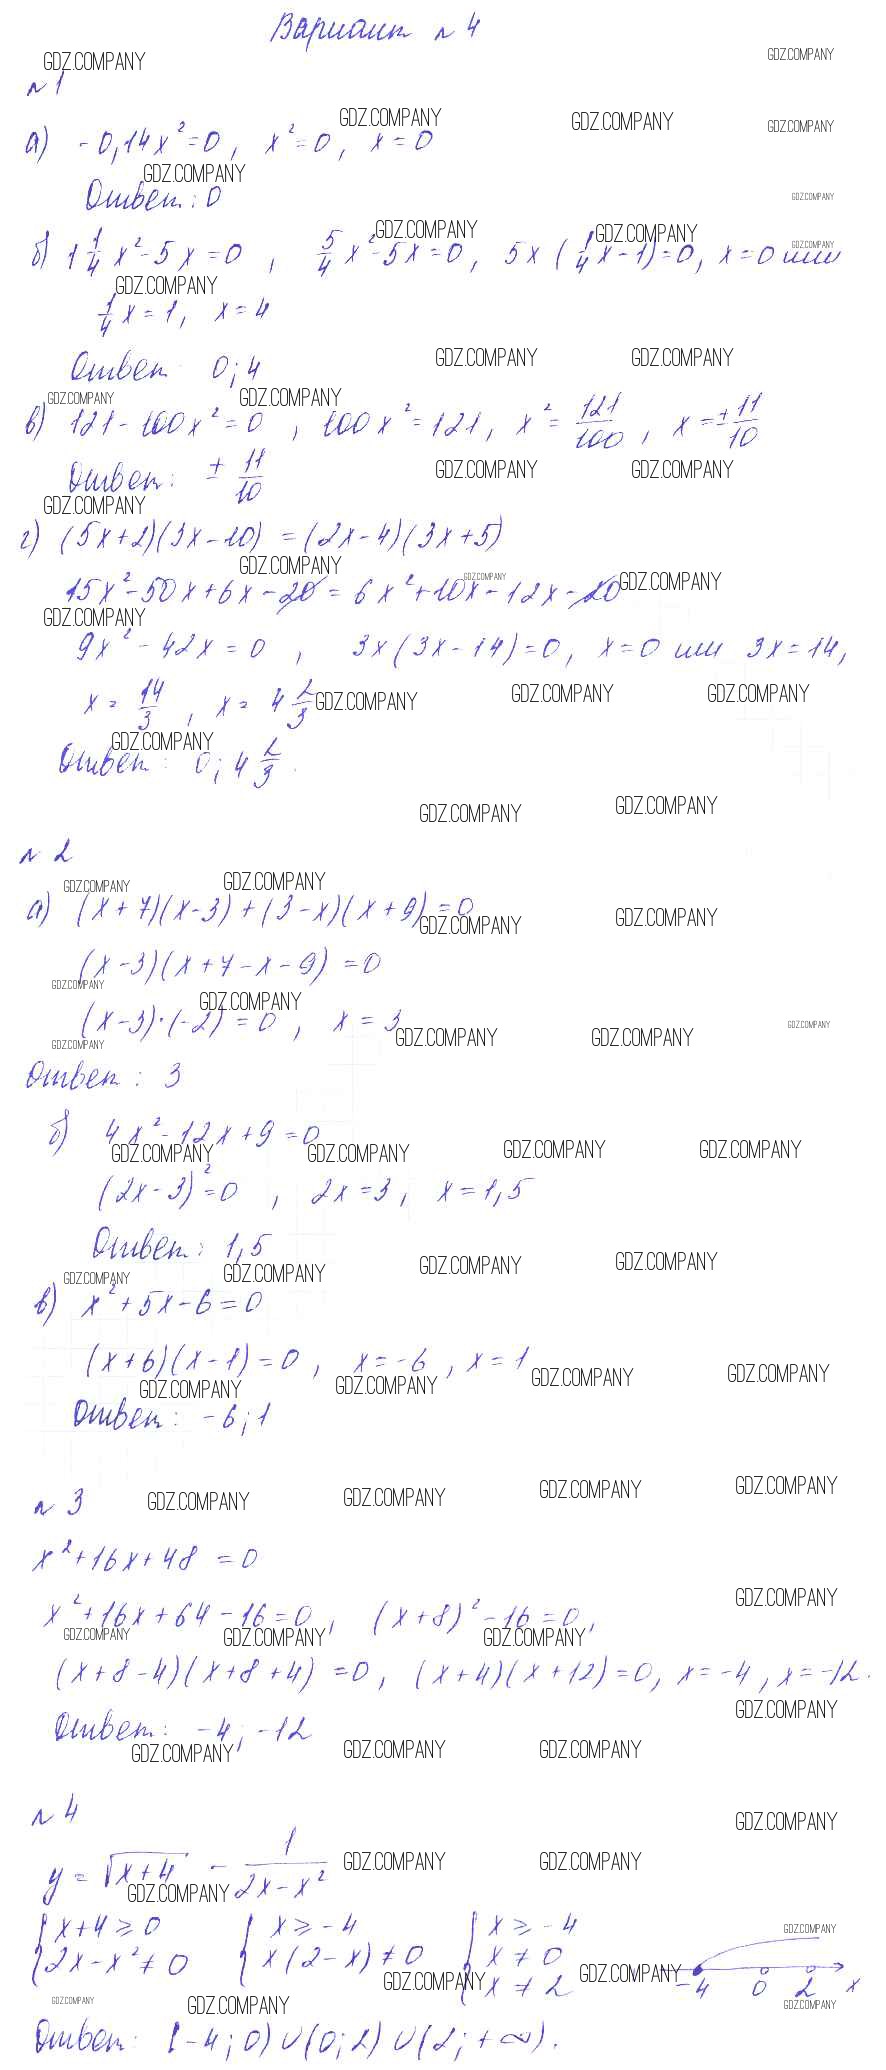 Вариант №4
№1
а) -0,14x²=0, x²=0, x=0
Ответ: 0
б) 1 1/4 x²-5x=0, 5/4 x²-5x=0, 5x(1/4 x-1)=0, x=0 или
1/4 x=1, x=4
Ответ 0; 4
в) 121-100x²=0, 100x²=121, x²=121/100, x=±11/10
Ответ: ± 11/10
г) (5x+2)(3x-10)=(2x-4)(3x+5)
15x²-50x+6x-20=6x²+10x-12x-20
9x²-42x=0, 3x(3x-14)=0, x=0 или 3x=14,
x=14/3, x=4 2/3
Ответ: 0; 4 2/3.
№2
а) (x+7)(x-3)+(3-x)(x+9)=0
(x-3)(x+7-x-9)=0
(x-3)·(-2)=0, x=3
Ответ: 3
б) 4x²-12x+9=0
(2x-3)²=0, 2x=3, x=1,5
Ответ: 1,5
в) x²+5x-6=0
(x+6)(x-1)=0, x=-6, x=1
Ответ: -6; 1
№3
x²+16x+48=0
x²+16x+64-16=0, (x+8)²-16=0,
(x+8-4)(x+8+4)=0, (x+4)(x+12)=0, x=-4, x=-12.
Ответ: -4; -12
№4
y=√(x+4) - 1/(2x-x²)
{x+4≥0 {x≥-4 {x≥-4
2x-x²≠0 x(2-x)≠0 x≠0
x≠2 -4 0 2 x
Ответ: [-4; 0)∪(0; 2)∪(2; +∞).
GDZ.COMPANY